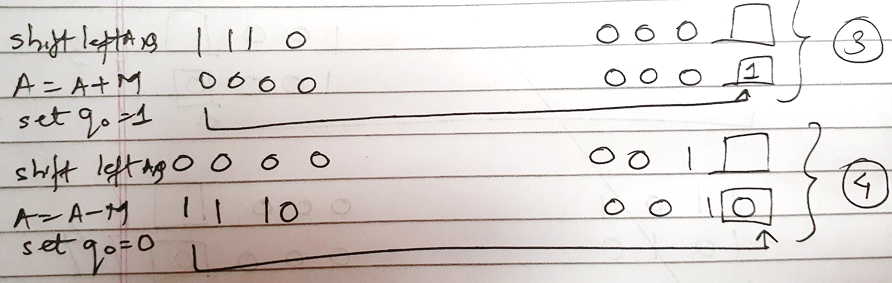 shift left AQ 1 1 1 0 0 0 0 3
A = A + M 0 0 0 0 0 0 0 1
set q0=1
shift left AQ 0 0 0 0 0 0 1 4
A = A - M 1 1 1 0 0 0 1 0
set q0=0